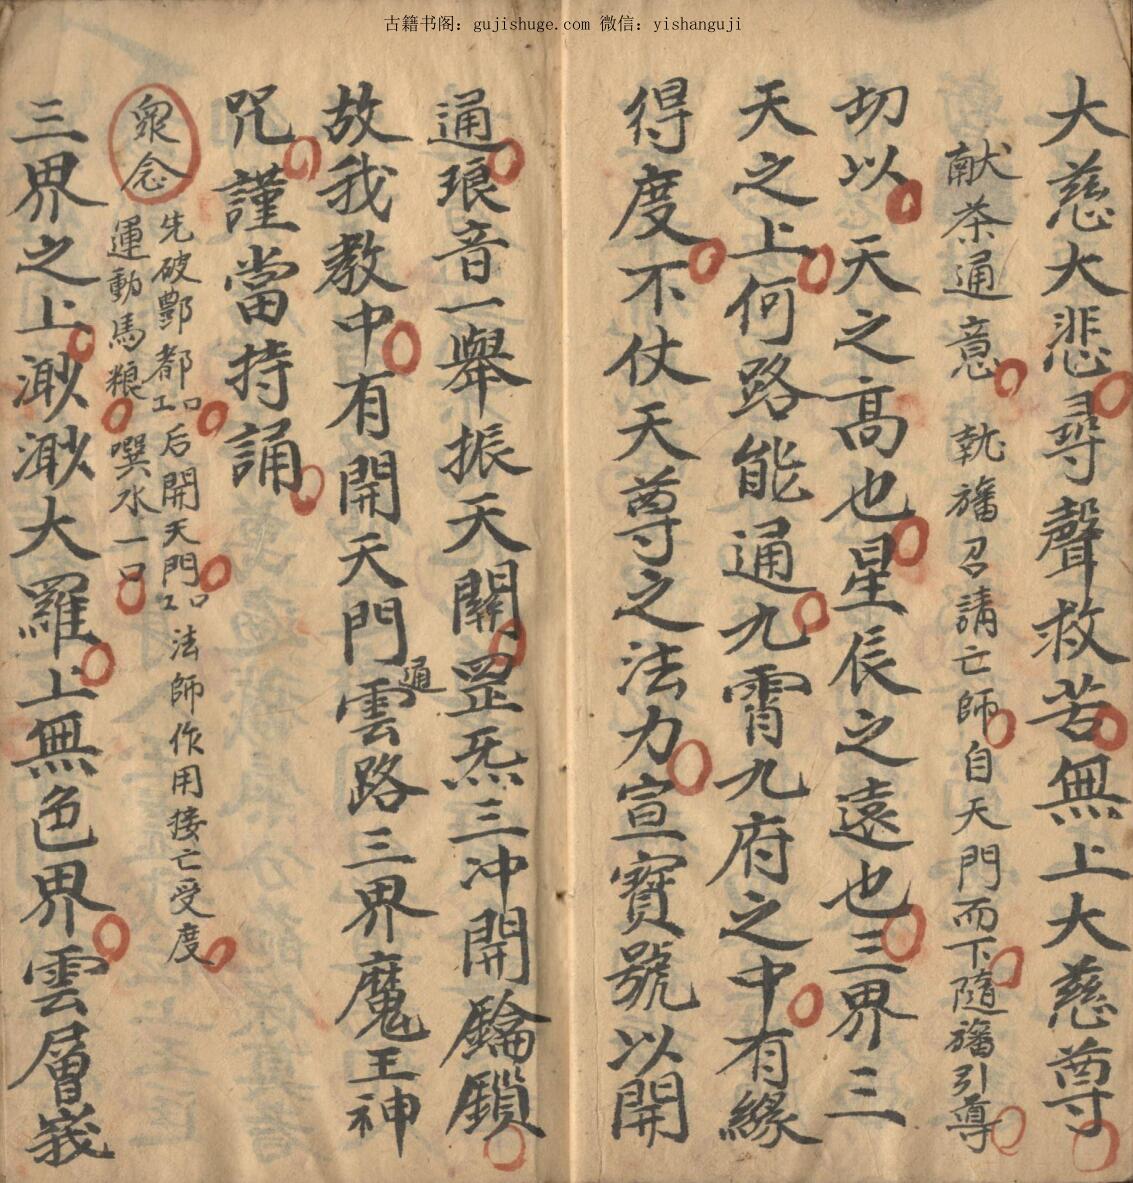 古籍书阁：gujishuge.com 微信：yishanguji
大慈大悲尋聲救苦無上大慈尊
献茶通意 執旛召請亡師自天門而下隨旛引導
切以天之高也星辰之遠也三界三
天之上何路能通九霄九府之中有緣
得度不仗天尊之法力宣寶號以開
通琅音一舉振天關罡炁三冲開鑰鎖
故我教中有開天門雲路三界魔王神
通
咒謹當持誦
先破酆都 后開天門 法師作用接亡受度
衆念
運動馬粮 噀水一口
三界之上渺渺大羅上無色界雲層峩